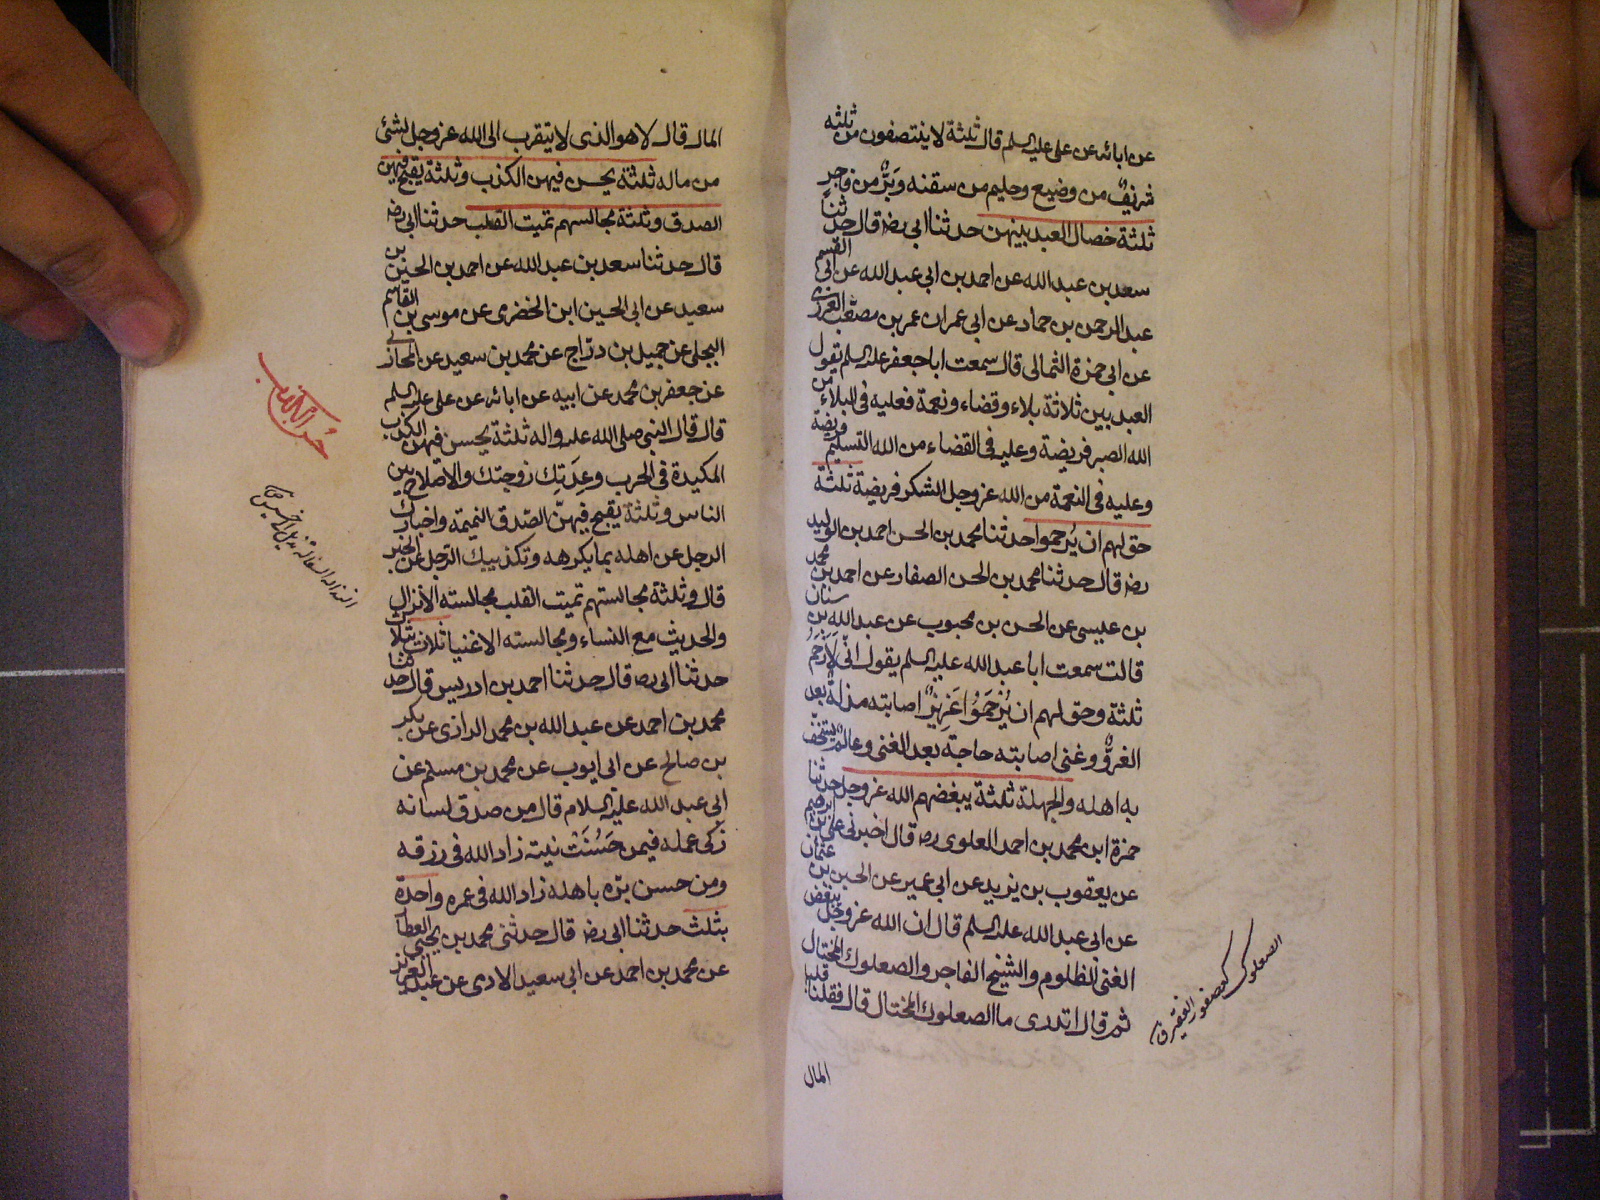 عن ابائه عن علي عليه السلم قال ثلثة لا ينتصفون من ثلثه
شريفٌ من وضيع وحليم من سفيه وبَرٌّ من فاجر
ثلثة خصال العبد بينهن حدثنا ابي رضه قال حدثنا
سعد بن عبد الله عن احمد بن ابي عبد الله عن ابي القسم
عبد الرحمن بن حماد عن ابي عمران عمر بن مصعب العرزمى
عن ابي حمزة الثمالى قال سمعت ابا جعفر عليه السلم يقول
العبد بين ثلاثة بلاء وقضاء ونعمة فعليه فى البلاء من
الله الصبر فريضة وعليه فى القضاء من الله التسليم فريضة
وعليه فى النعمة من الله عز وجل الشكر فريضة ثلثة
حق لهم ان يُرحموا حدثنا محمد بن الحسن احمد بن الوليد
رضه قال حدثنا محمد بن الحسن الصفار عن احمد بن محمد
بن عيسى عن الحسن بن محبوب عن عبد الله بن سنان
قالت سمعت ابا عبد الله عليه السلم يقول انّى لَاَرْحَمُ
ثلثة وحق لهم ان يُرْحَمَوُا عَزِيزٌ اصابته مذلةٌ بعد
العزّ وغنى اصابته حاجة بعد الغنى وعالمٌ يستخفّ
به اهله والجهلة ثلثة يبغضهم الله عز وجل حدثنا
حمزة ابن محمد بن احمد العلوى رضه قال اخبرنى على بن ابرهيم
عن يعقوب بن يزيد عن ابي عمير عن الحسين بن عثمان
عن ابي عبد الله عليه السلم قال ان الله عز وجل يبغض
الغنى الظلوم والشيخ الفاجر والصعلوك المختال
ثم قال اتدرى ما الصعلوك المختال قال فقلنا قليل
المال
الصعلوك كعصفور الفقير ق
المال قال لا هو الذى لا يتقرب الى الله عز وجل بشئ
من ماله ثلثة يحسن فيهن الكذب وثلثة يقبح فيهن
الصدق وثلثة مجالستهم تميت القلب حدثنا ابي رضه
قال حدثنا سعد بن عبد الله عن احمد بن الحسين بن
سعيد عن ابي الحسين ابن الخضرى عن موسى بن القاسم
البجلى عن جميل بن درّاج عن محمد بن سعيد عن المحاربى
عن جعفر بن محمد عن ابيه عن ابائه عن على عليه السلم
قال قال النبى صلى الله عليه واله ثلثة يحسن فيهن الكذب
المكيدة فى الحرب وعِدَتِك زوجتك والاصلاح بين
الناس وثلثة يقبح فيهنّ الصّدق النميمة واخبارك
الرجل عن اهله بما يكرهه وتكذيبك الرّجل عن الخبر
قال وثلثة مجالستهم تميت القلب مجالسته الأنزال
والحديث مع النساء ومجالسته الاغنيا ثلاث بثلاث
حدثنا ابى رضه قال حدثنا احمد بن ادريس قال حدثنا
محمد بن احمد عن عبد الله بن محمد الرازى عن بكر
بن صالح عن ابى ايوب عن محمد بن مسلم عن
ابى عبد الله عليه السلام قال من صدق لسانه
زكى عمله فيمن حَسُنَتْ نيته زاد الله فى رزقه
ومن حسن برّه باهله زاد الله فى عمره واحدة
بثلث حدثنا ابى رضه قال حدثنى محمد بن يحيى العطار
عن محمد بن احمد عن ابى سعيد الادمى عن عبد العزيز
حُسن الكذب
النذالة السفالة